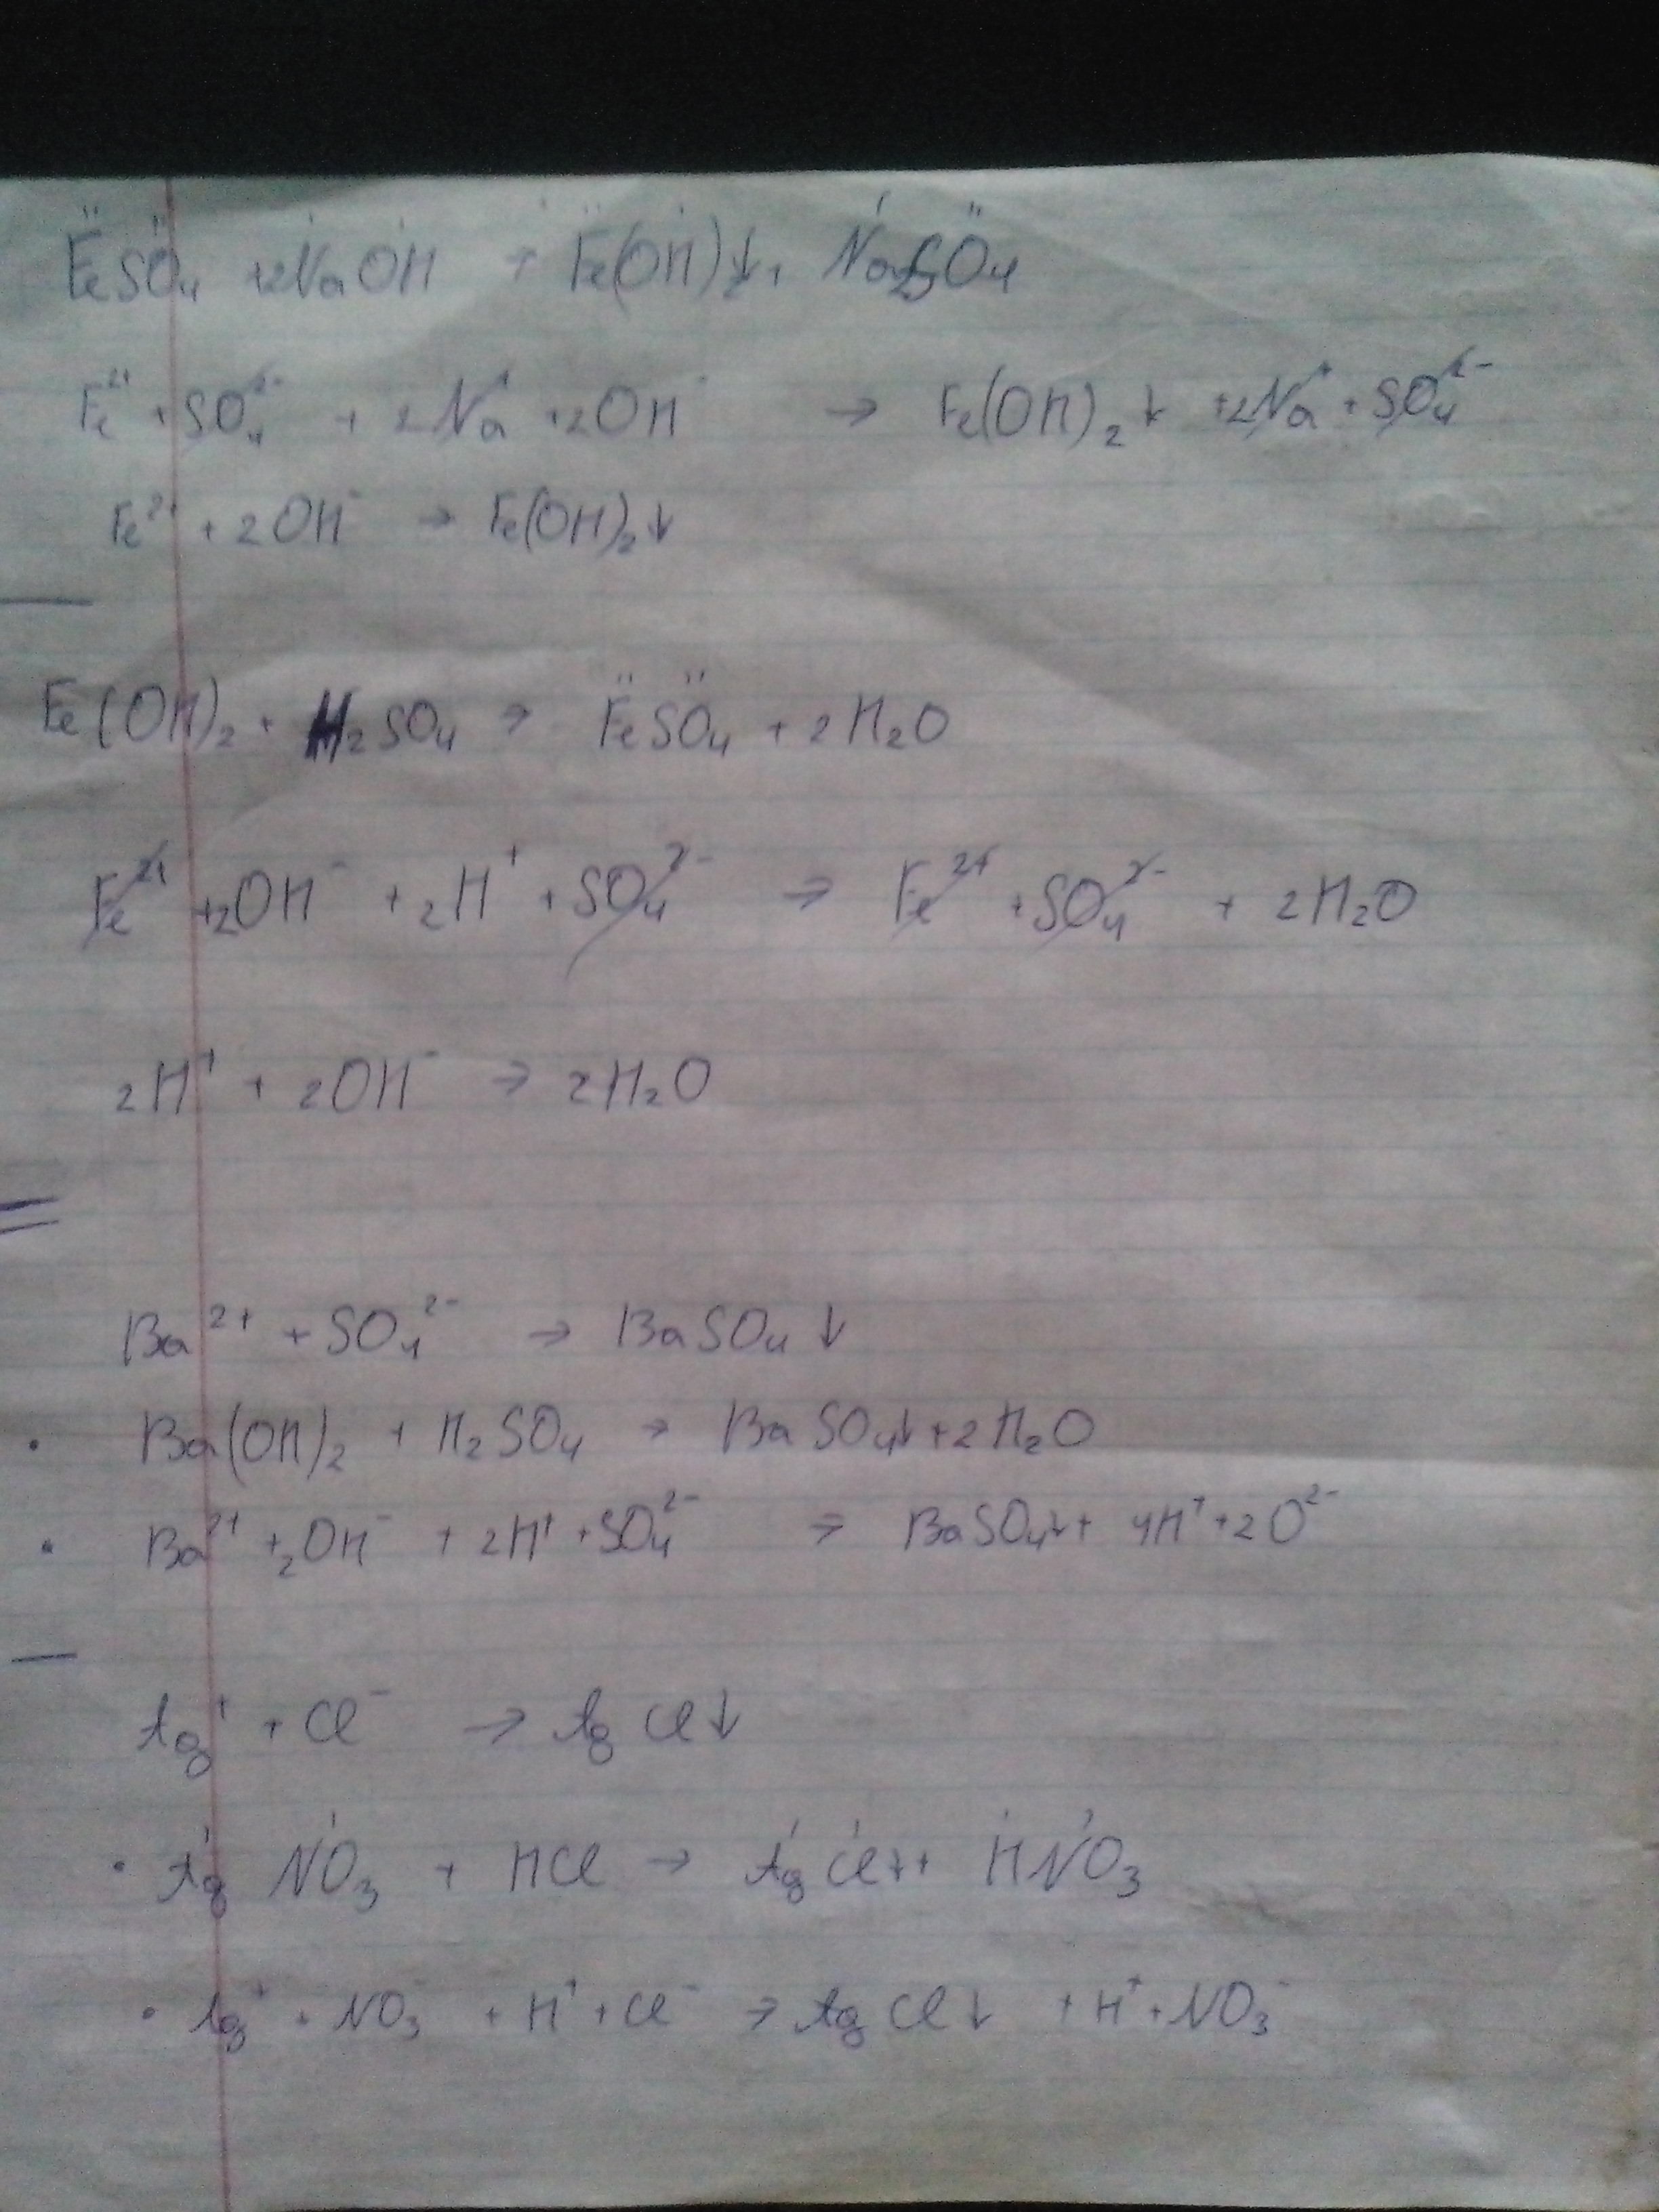 FeSO₄ +2NaOH → Fe(OH)₂↓ + Na₂SO₄
Fe²⁺ + SO₄²⁻ + 2Na⁺ + 2OH⁻ → Fe(OH)₂↓ + 2Na⁺ + SO₄²⁻
Fe²⁺ + 2OH⁻ → Fe(OH)₂↓
Fe(OH)₂ + H₂SO₄ → FeSO₄ + 2H₂O
Fe²⁺ + 2OH⁻ + 2H⁺ + SO₄²⁻ → Fe²⁺ + SO₄²⁻ + 2H₂O
2H⁺ + 2OH⁻ → 2H₂O
Ba²⁺ + SO₄²⁻ → BaSO₄↓
• Ba(OH)₂ + H₂SO₄ → BaSO₄↓ + 2H₂O
• Ba²⁺ + 2OH⁻ + 2H⁺ + SO₄²⁻ → BaSO₄↓ + 4H⁺ + 2O²⁻
Ag⁺ + Cl⁻ → AgCl↓
• AgNO₃ + HCl → AgCl↓ + HNO₃
• Ag⁺ + NO₃⁻ + H⁺ + Cl⁻ → AgCl↓ + H⁺ + NO₃⁻